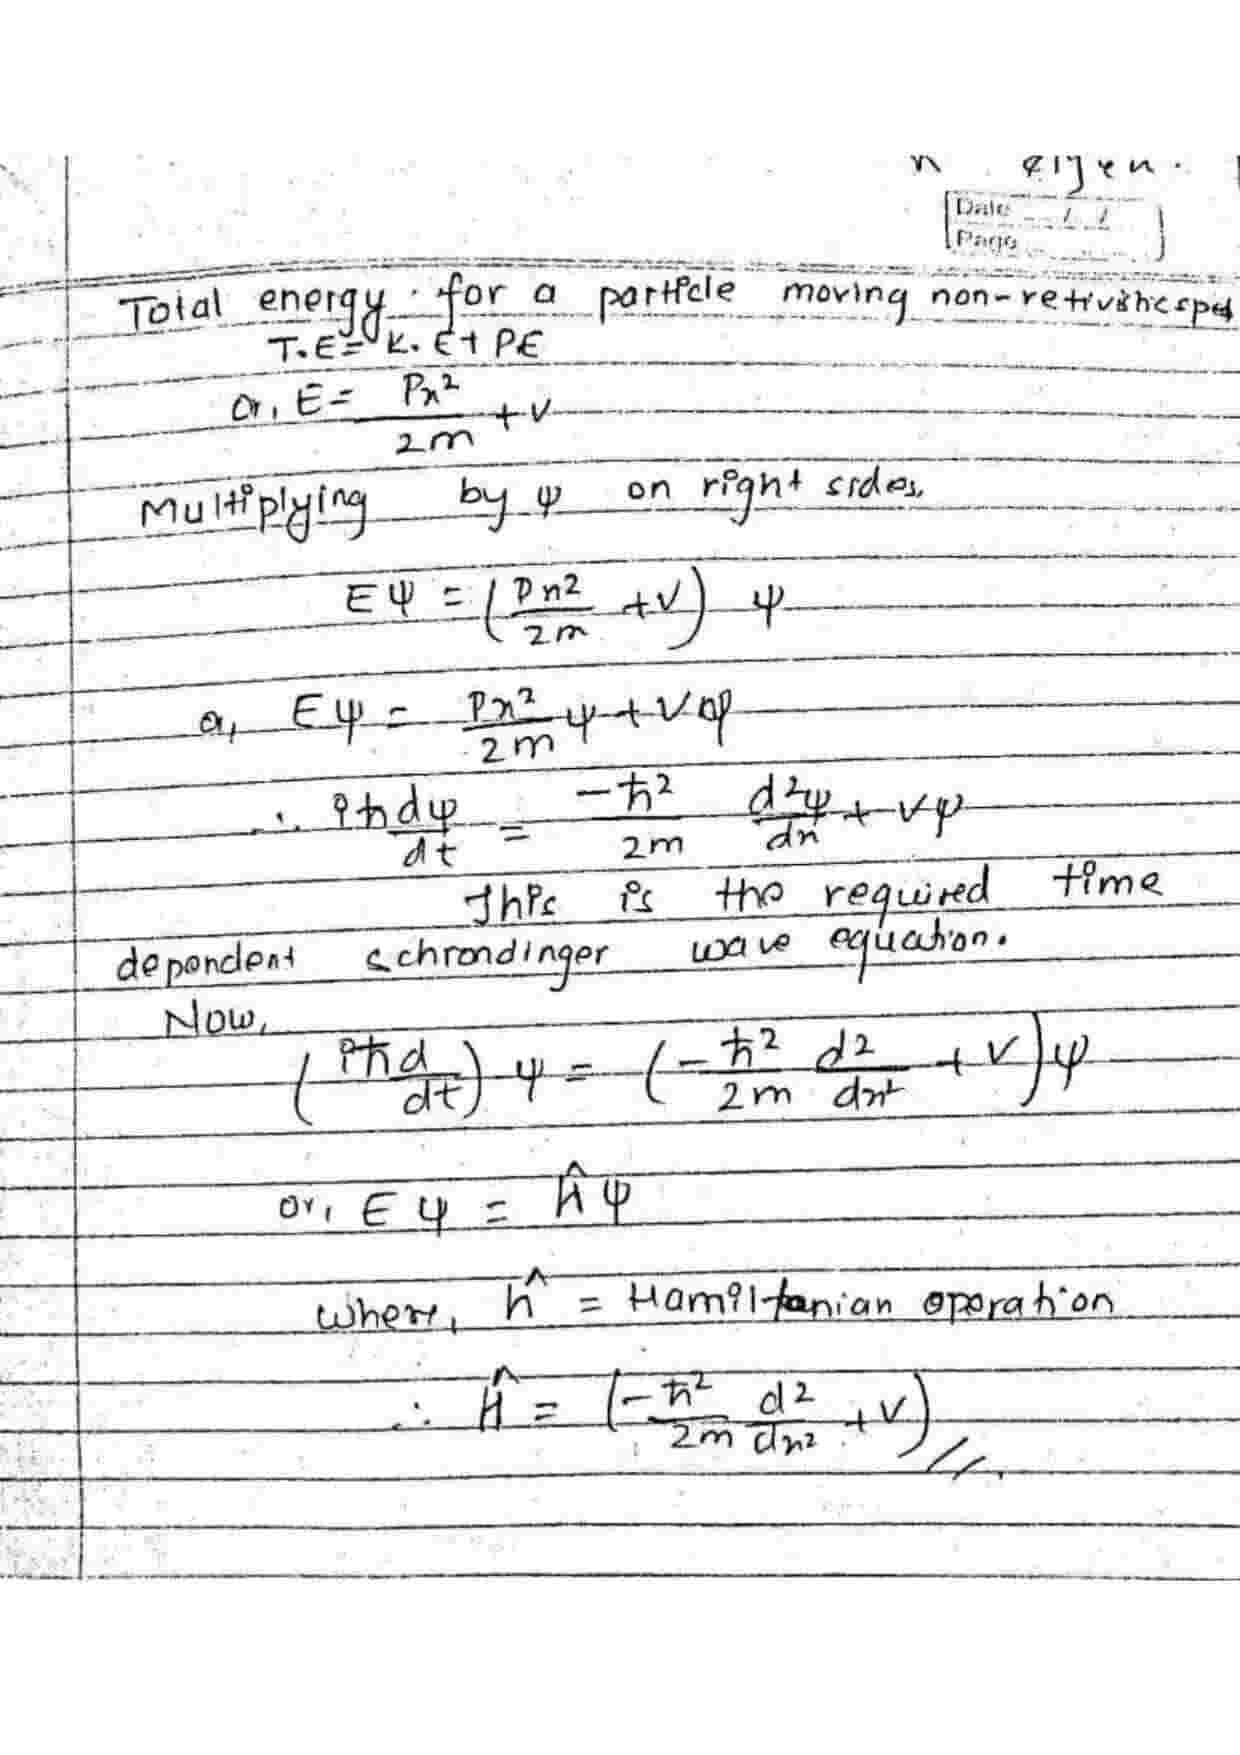 n eigen.
Date / /
Page
Total energy for a particle moving non-retivistic sped
T.E = K.E + PE
or, E = Px²/2m + V
Multiplying by ψ on right sides.
Eψ = (Px²/2m + V) ψ
or, Eψ = Px²/2m ψ + Vψ
∴ iħ dψ/dt = -ħ²/2m d²ψ/dx + Vψ
This is the required time
dependent schrondinger wave equation.
Now,
(iħd/dt) ψ = (-ħ²/2m d2/dx² + V) ψ
or, Eψ = Ĥψ
where, ĥ = Hamiltonian oporation
∴ Ĥ = (-ħ²/2m d2/dx² + V)